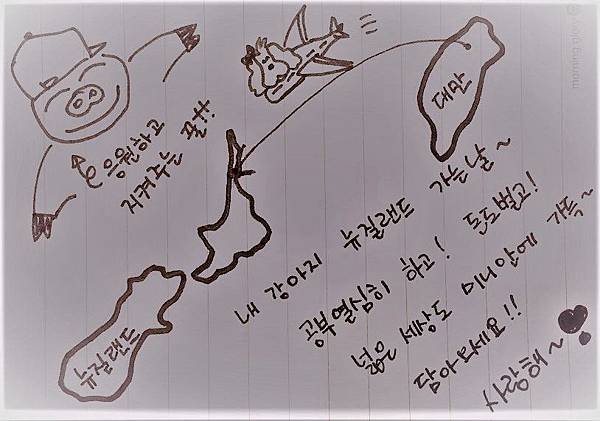 대만
morning glory
응원하고
지켜주는 꿀꿀
내 강아지 뉴질랜드 가는날~
공부열심히 하고! 돈도벌고!
넓은 세상도 미니안에 가득~
담아와세요!!
사랑해~
뉴질랜드